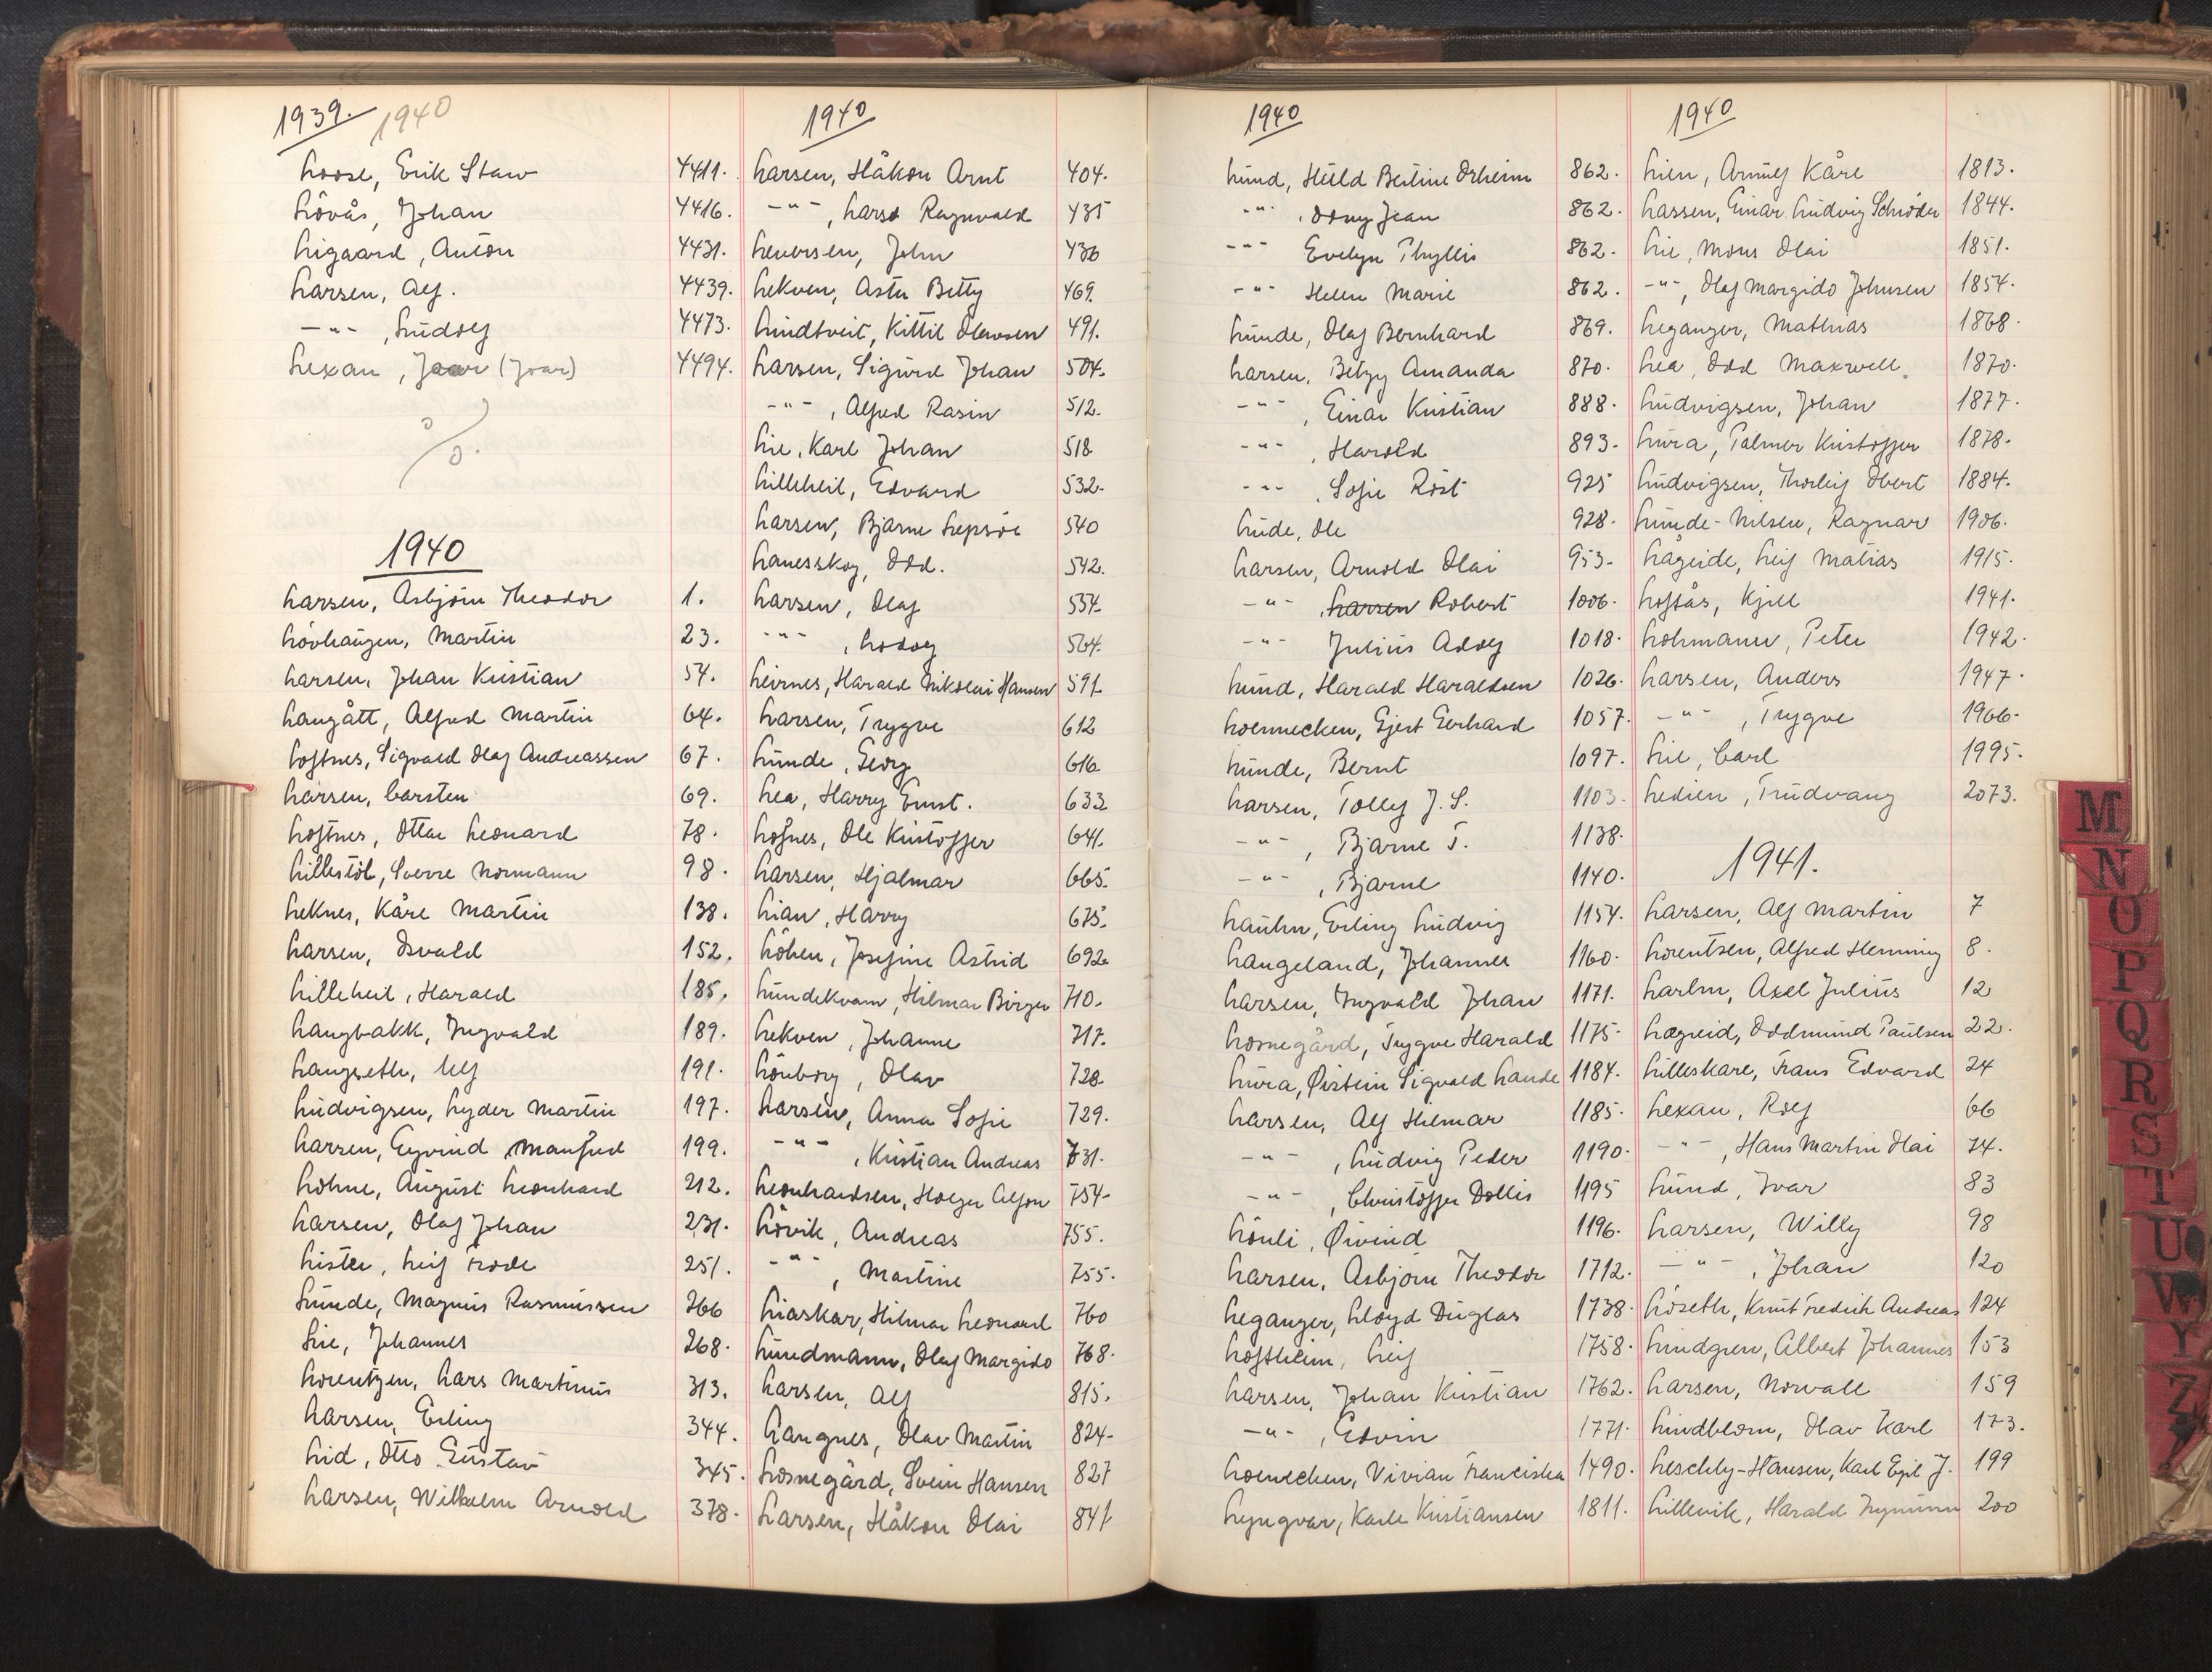 1939. 1940
Loose, Erik Staw 4411.
Lövås, Johan 4416.
Ligaard, Anton 4431.
Larsen, Alf. 4439.
-"-, Ludolf 4473.
Lexau, Joar (Joar) 4494.
1940
Larsen, Asbjörn Theodor 1.
Lövhaugen, Martin 23.
Larsen, Johan Kristian 54.
Langått, Alfred Martin 64.
Loftnes, Sigvald Olaf Andreassen 67.
Larsen, Carsten 69.
Loftnes, Ottar Leonard 78.
Lillestöl, Sverre Normann 98.
Leknes, Kåre Martin 138.
Larsen, Osvald 152.
Lilleheil, Harald 185.
Langbakk, Ingvald 189.
Langseth, Ulf 191.
Ludvigsen, Lyder Martin 197.
Larsen, Eyvind Manfred 199.
Lohne, August Leonhard 212.
Larsen, Olaf Johan 231.
Lister, Leif Frode 251.
Lunde, Magnus Rasmussen 266
Lie, Johannes 268.
Lorentzen, Lars Martinus 313.
Larsen, Erling 344.
Lid, Otto Gustav 345.
Larsen, Wilhelm Arnold 378.
1940
Larsen, Håkon Arnt 404.
-"-, Lars Ragnvald 435
Leversen, John 436
Lekven, Asta Betty 469.
Lindtveit, Kittil Olavsen 491.
Larsen, Sigurd Johan 504.
-"-, Alfred Rasin 512.
Lie, Karl Johan 518
Lilleheil, Edvard 532.
Larsen, Bjarne Lepsöe 540
Lanesskog, Odd. 542.
Larsen, Olaf 554.
-"-, Lodolf 564.
Leirnes, Harald Nikolai Hansen 591.
Larsen, Trygve 612
Lunde, Georg 616
Lea, Harry Ernst. 633
Lofnes, Ole Kristoffer 641.
Larsen, Hjalmar 665.
Lian, Harry 675.
Löhen, Josefine Astrid 692.
Lundekvam, Hilmar Birger 710.
Lekven, Johanne 717.
Lönborg, Olav 728.
Larsen, Anna Sofie 729.
-"-, Kristian Andreas 731.
Leonhardsen, Holger Alfon 754.
Lövik, Andreas 755.
-"-, Martine 755.
Liaskar, Hilmar Leonard 760
Lundmann, Olaf Margido 768.
Larsen, Alf 815.
Langnes, Olav Martin 824.
Losnegård, Svein Hansen 827
Larsen, Håkon Olai 841
1940
Lund, Huld Bertine Orheim 862.
-"-, Dony Jean 862.
-"- Evelyn Phyllis 862.
-"- Helen Marie 862.
Lunde, Olaf Bernhard 869.
Larsen, Betzy Amanda 870.
-"-, Einar Kristian 888.
-"-, Harold 893.
-"-, Sofie Röst 925
Lude, Ole 928.
Larsen, Arnold Olai 953.
-"-, Larsen Robert 1006.
-"- Julius Adolf 1018.
Lund, Harald Haraldsen 1026.
Loennecken, Gjert Gerhard 1057.
Lunde, Bernt 1097.
Larsen, Tolly J. S. 1103.
-"-, Bjarne T. 1138.
-"-, Bjarne 1140.
Lauhn, Erling Ludvig 1154.
Langeland, Johannes 1160.
Larsen, Ingvald Johan 1171.
Losnegård, Trygve Harald 1175.
Lura, Øistein Sigvald Lande 1184.
Larsen, Alf Hilmar 1185.
-"-, Ludvig Peder 1190.
-"-, Christoffer Dollis 1195
Lönli, Øivind 1196.
Larsen, Asbjörn Theodor 1712.
Leganger, Lloyd Duglas 1738.
Loftheim, Leif 1758.
Larsen, Johan Kristian 1762.
-"-, Edvin 1771.
Loennechen, Vivian Franciska 1490.
Lyngvær, Karle Kristiansen 1811.
1940
Lien, Arnulf Kåre 1813.
Lassen, Einar Ludvig Schröder 1844.
Lie, Mons Olai 1851.
-"-, Olaf Margido Johnsen 1854.
Leganger, Mathias 1868.
Lea, Odd Maxwell. 1870.
Ludvigsen, Johan 1877.
Lura, Palmer Kristoffer 1878.
Ludvigsen, Thorleif Obert 1884.
Lunde-Nilsen, Ragnar 1906.
Lågeide, Leif Matias 1915.
Loftås, Kjell 1941.
Lohmann, Peter 1942.
Larsen, Anders 1947.
-"-, Trygve 1966.
Lie, Carl 1995.
Ledien, Trudvang 2073.
1941.
Larsen, Alf Martin 7
Lorentsen, Alfred Henning 8.
Larlm, Axel Julius 12
Lægreid, Oddmund Paulsen 22.
Lilleskare, Frans Edvard 24
Lexau, Rolf 66
-"-, Hans Martin Olai 74.
Lund, Ivar 83
Larsen, Willy 98
-"-, Johan 120
Löseth, Knut Fredrik Andreas 124
Lindgren, Albert Johannes 153
Larsen, Norvall 159
Lindblom, Olav Karl 173.
Leschly-Hansen, Karl Egil J. 199
Lillevik, Harald 200
M
N
O
P
Q
R
S
T
U
W
Y
Z